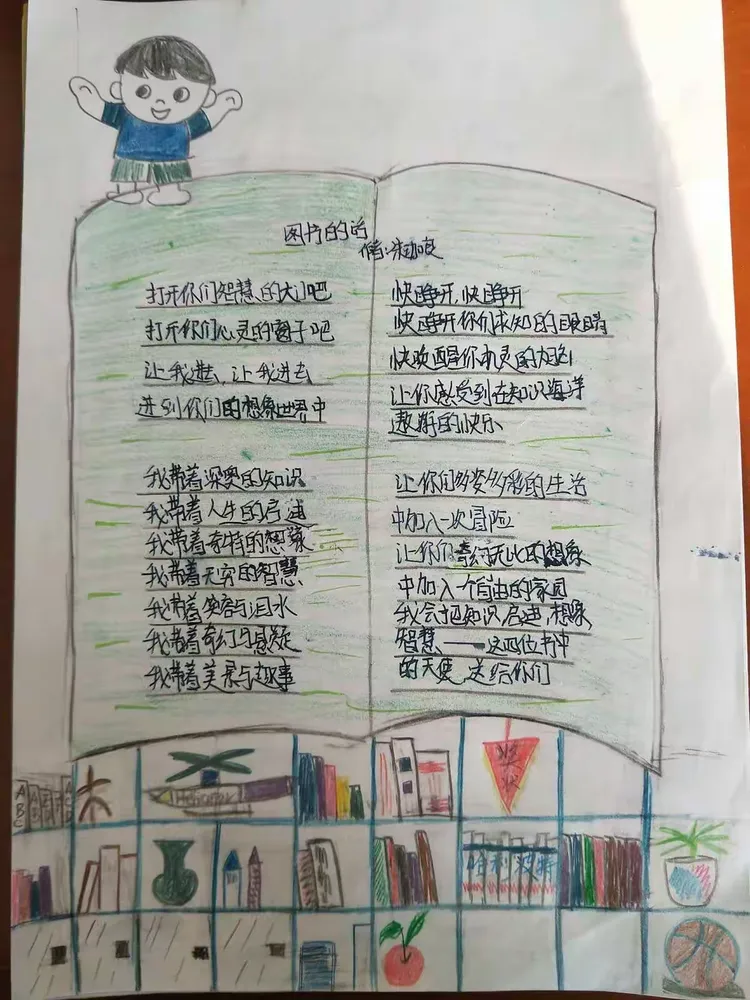 图书的话
作者:朱
打开你们智慧的大门吧
打开你们心灵的窗子吧
让我进去、让我进去
进到你们的想象世界中
我带着深奥的知识
我带着人生的启迪
我带着奇特的想象
我带着无穷的智慧
我带着笑容与泪水
我带着奇幻与悬疑
我带着美景与趣事
快睁开,快睁开
快睁开你们求知的眼睛
快唤醒你机灵的大脑
让你感受到在知识海洋
遨游的快乐
让你们多姿多彩的生活
中加入一次冒险
让你们奇幻无比的想象
中加入一个自由的家园
我会把知识、启迪、想象、
智慧——这四位书中
的天使,送给你们
ABC
奖状
Helicopter
哈利波特